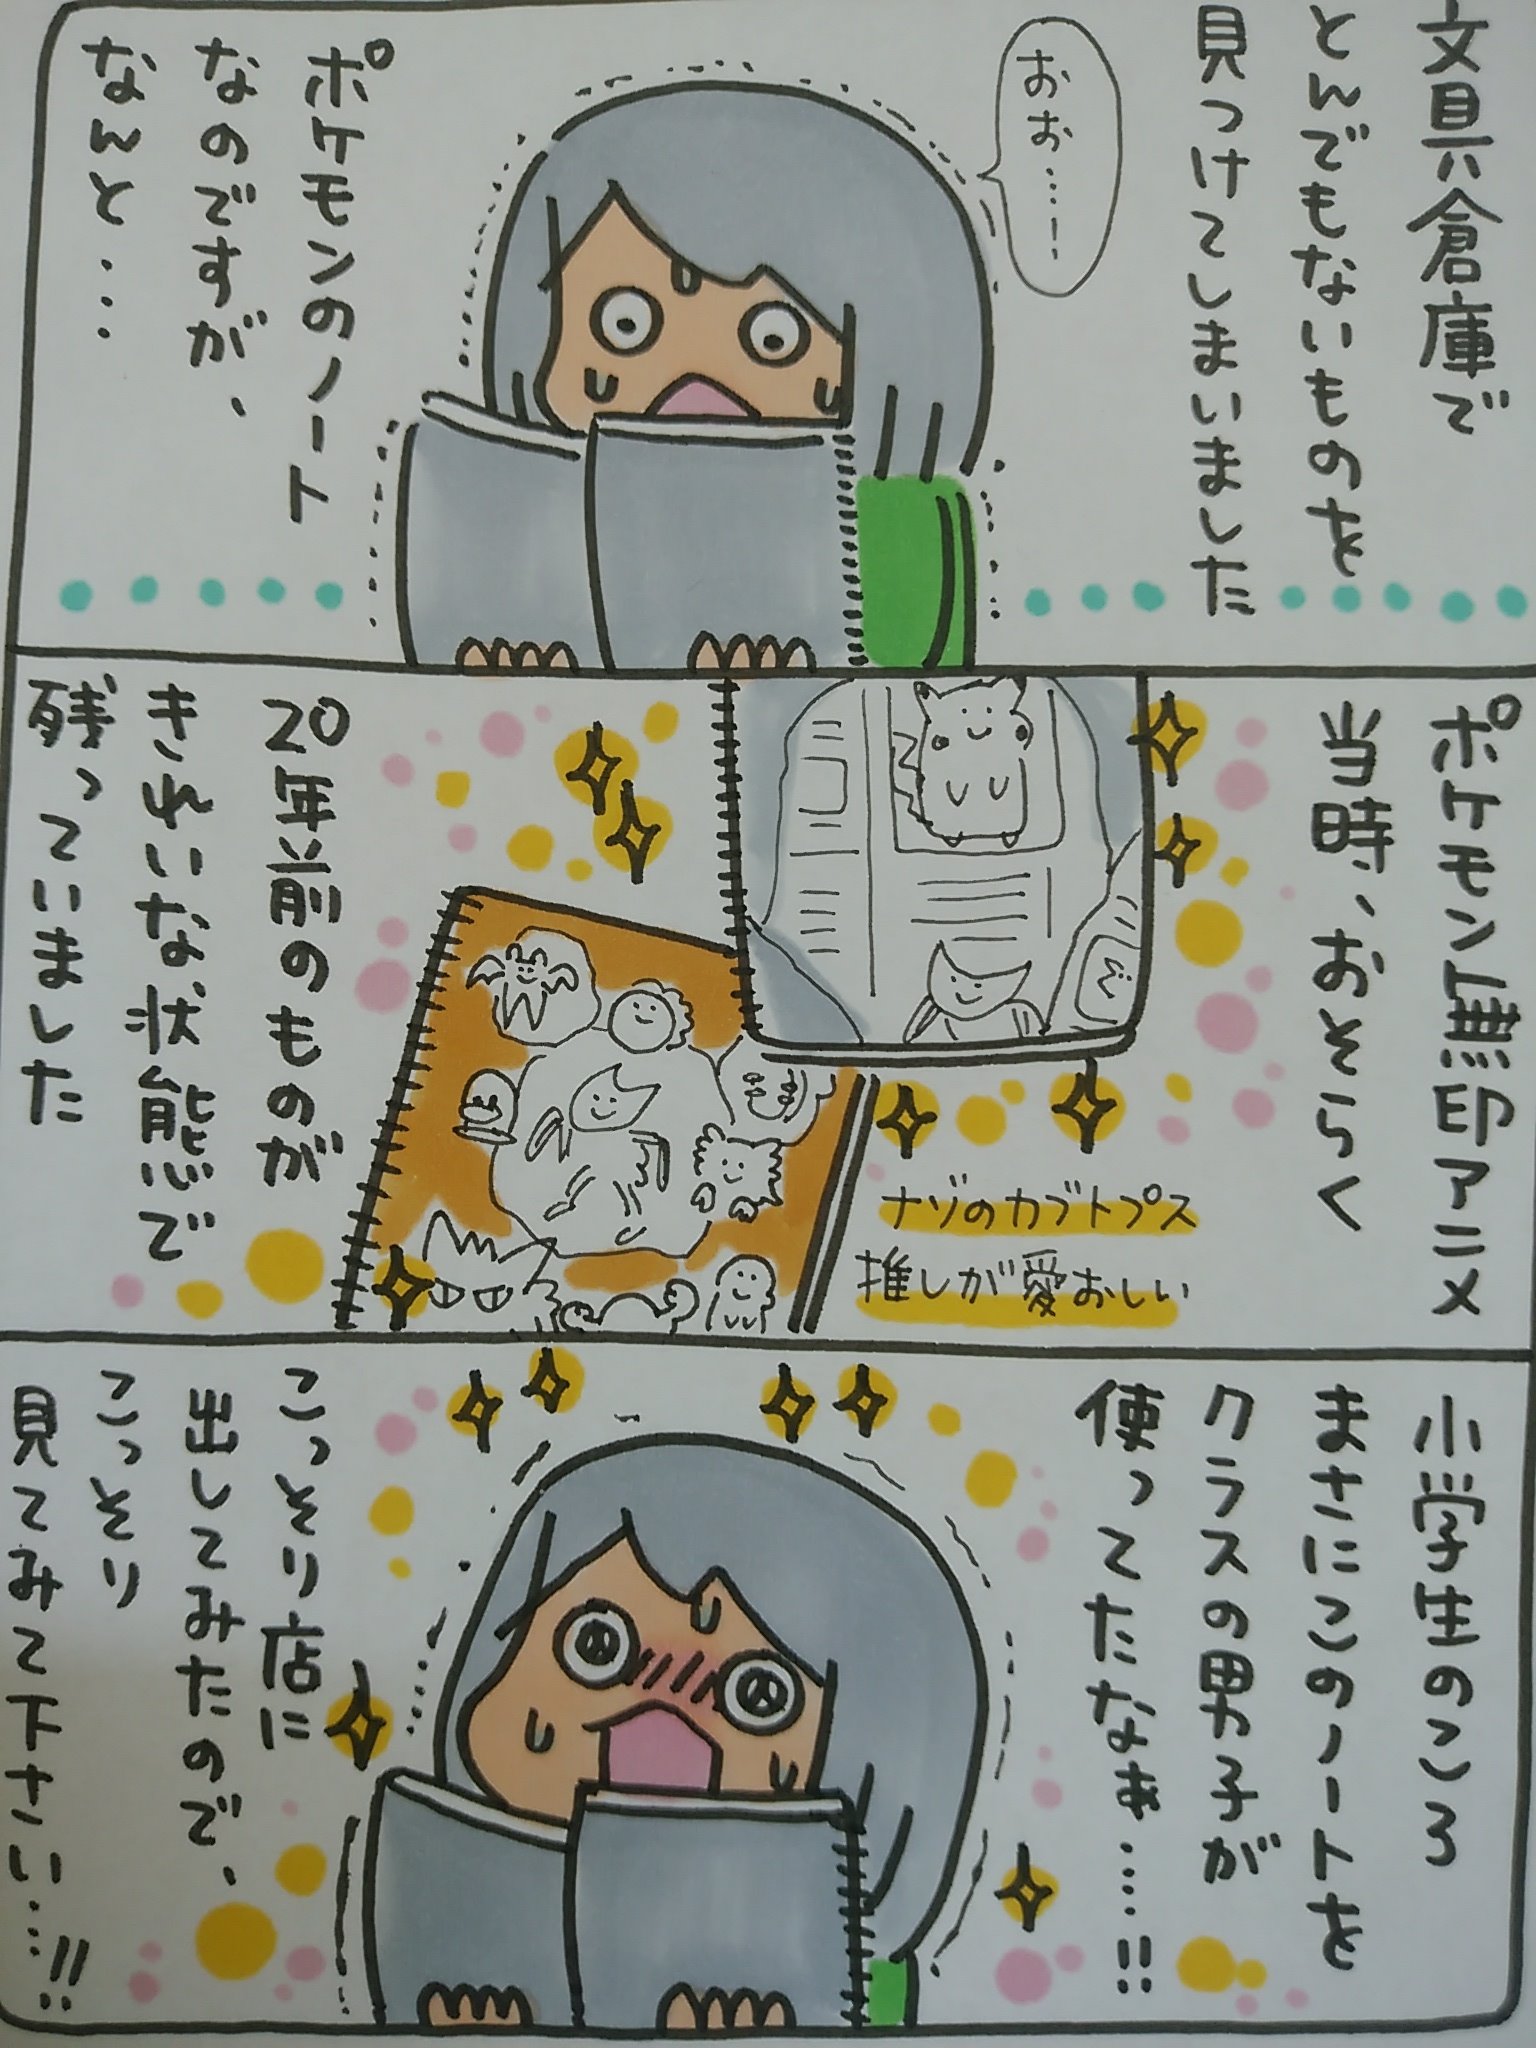 文具倉庫で
とんでもないものを
見つけてしまいました
おお…!
ポケモンのノート
なのですが、
なんと…
ポケモン無印アニメ
当時、おそらく
20年前のものが
きれいな状態で
残っていました
ナゾのカブトプス
推しが愛おしい
小学生のころ
まさにこのノートを
クラスの男子が
使ってたなぁ…!!
こっそり店に
出してみたので、
こっそり
見てみて下さい…!!